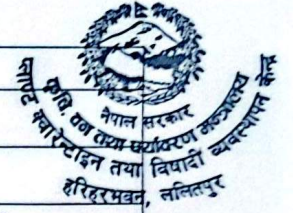 नेपाल सरकार
कृषि, वन तथा पर्यावरण मन्त्रालय
प्लाण्ट क्वारेन्टाइन तथा विषादी व्यवस्थापन केन्द्र
हरिहरभवन, ललितपुर